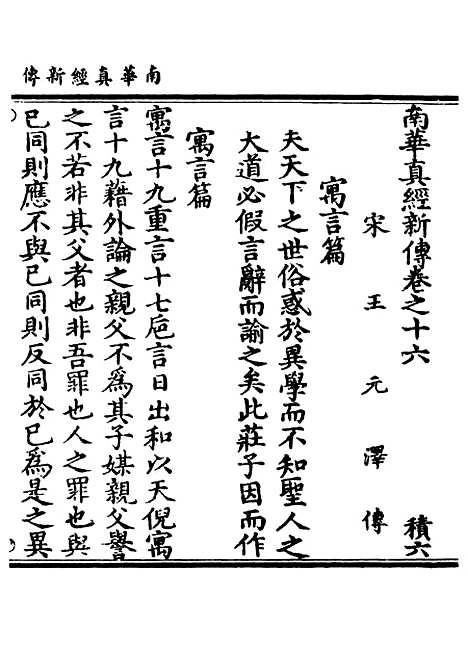 南華真經新傳
南華真經新傳卷之十六 積六
宋王元澤傳
寓言篇
夫天下之世俗惑於異學而不知聖人之
大道必假言辭而諭之矣此莊子因而作
寓言篇
寓言十九重言十七巵言日出和以天倪寓
言十九藉外論之親父不爲其子媒親父譽
之不若非其父者也非吾罪也人之罪也與
已同則應不與已同則反同於已爲是之異